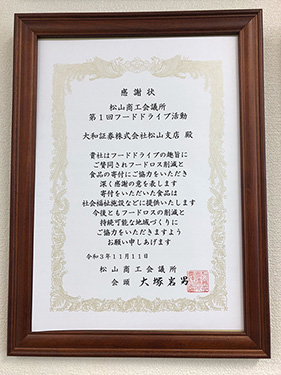 感謝状
松山商工会議所
第1回フードドライブ活動
大和証券株式会社松山支店 殿
貴社はフードドライブの趣旨に
ご賛同されフードロス削減と
食品の寄付にご協力をいただき
深く感謝の意を表します
寄付をいただいた食品は
社会福祉施設などに提供いたします
今後ともフードロスの削減と
持続可能な地域づくりに
ご協力をいただきますよう
お願い申しあげます
令和3年11月11日
松山商工会議所
会頭 大塚岩男